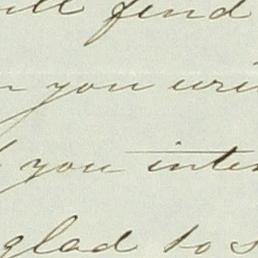 will find
you wri
you inten
glad to s